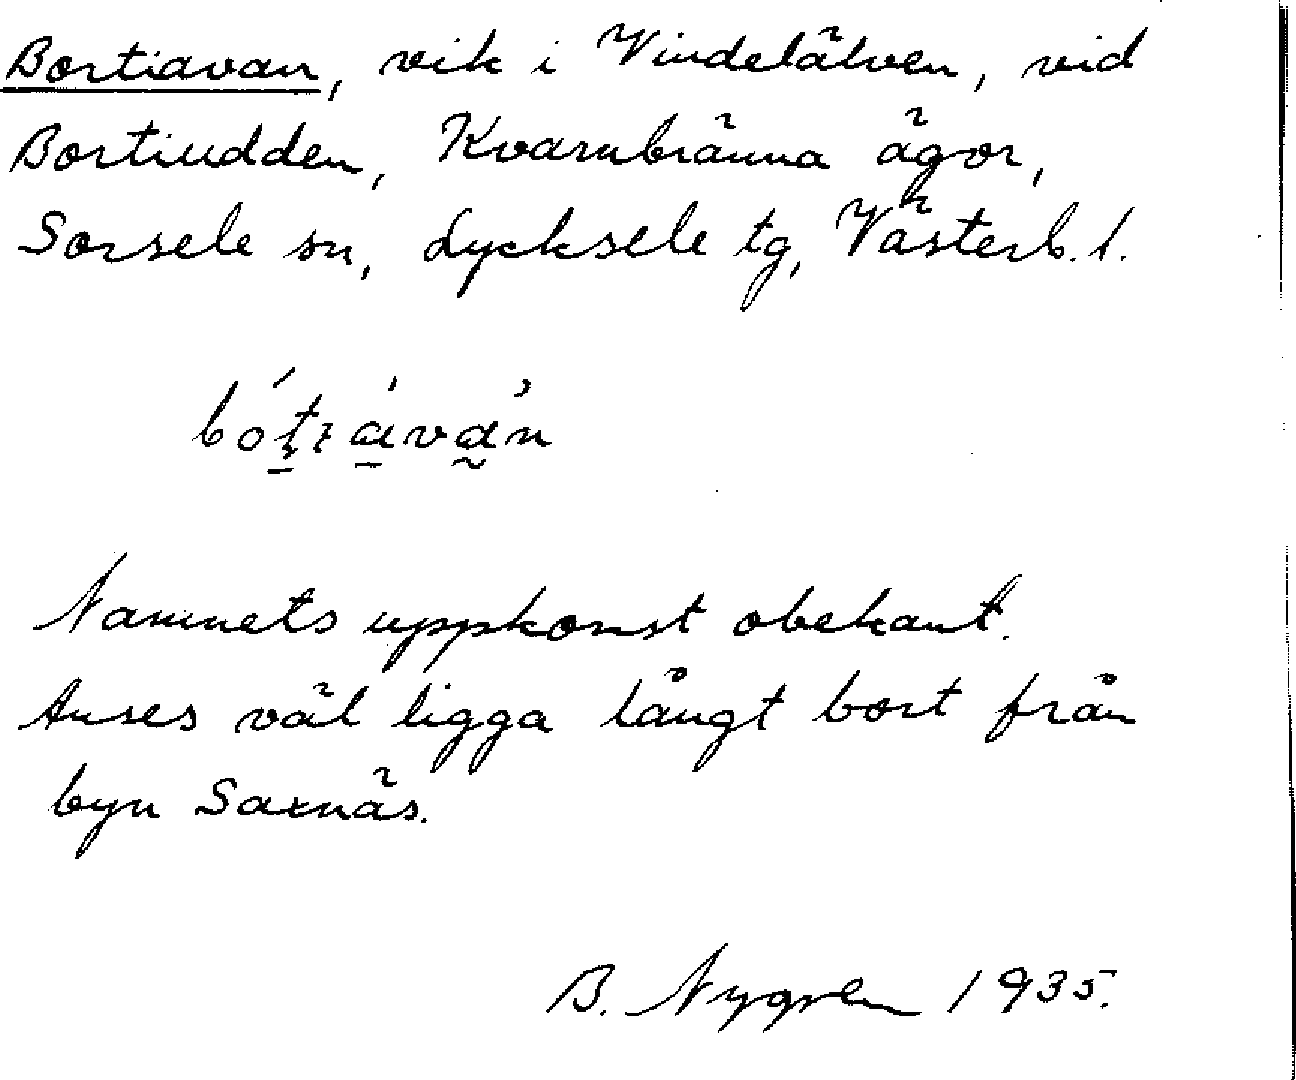 Bortiavan, vik i Vindelälven, vid
Bortiudden, Kvarnbränna ägor,
Sorsele sn, Lycksele tg, Västerb. l.
Namnets uppkomst obekant.
Anses väl ligga långt bort från
byn Saxnäs.
B. Nygren 1935.